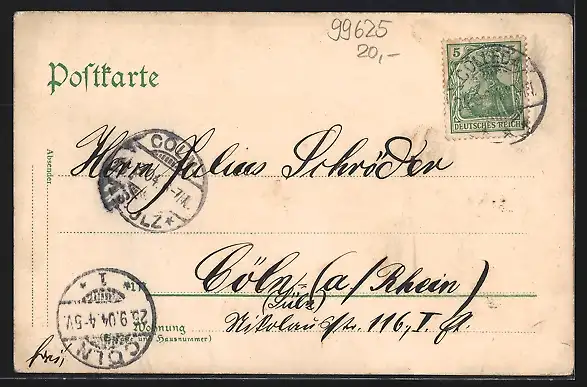 99625
20,-
Postkarte
5
DEUTSCHES REICH
CÖLLEDA
Absender:
Herrn Julius Schröder
CÖLN
SÜLZ
Cöln (a/Rhein)
(Sülz)
Nikolausstr. 116, I. Et.
Wohnung
(Straße und Hausnummer)
CÖLN
1
25.9.04.4-5V.
frei,